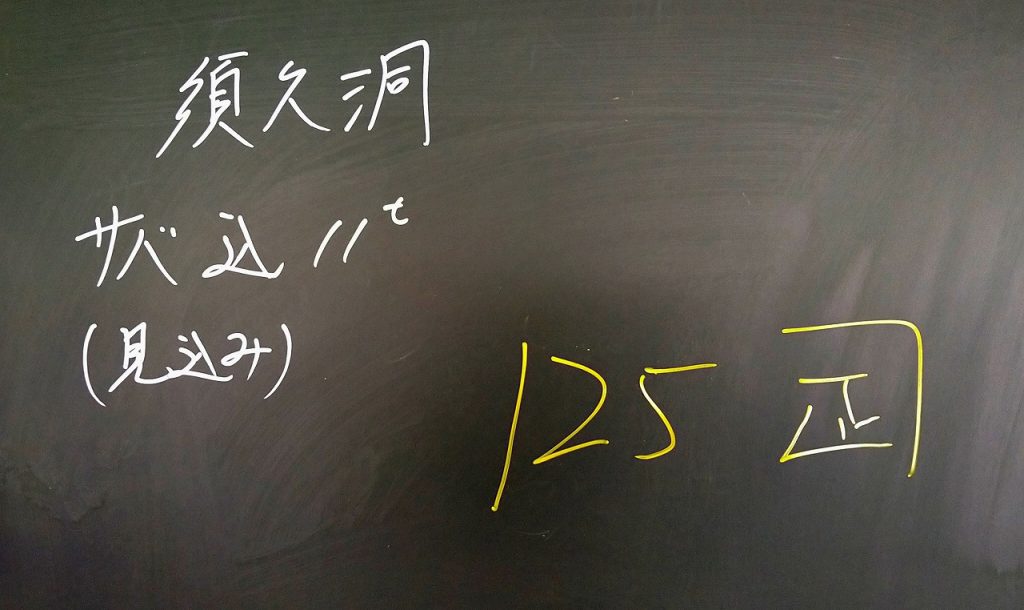 須久洞
サバ込 11t
(見込み)
125